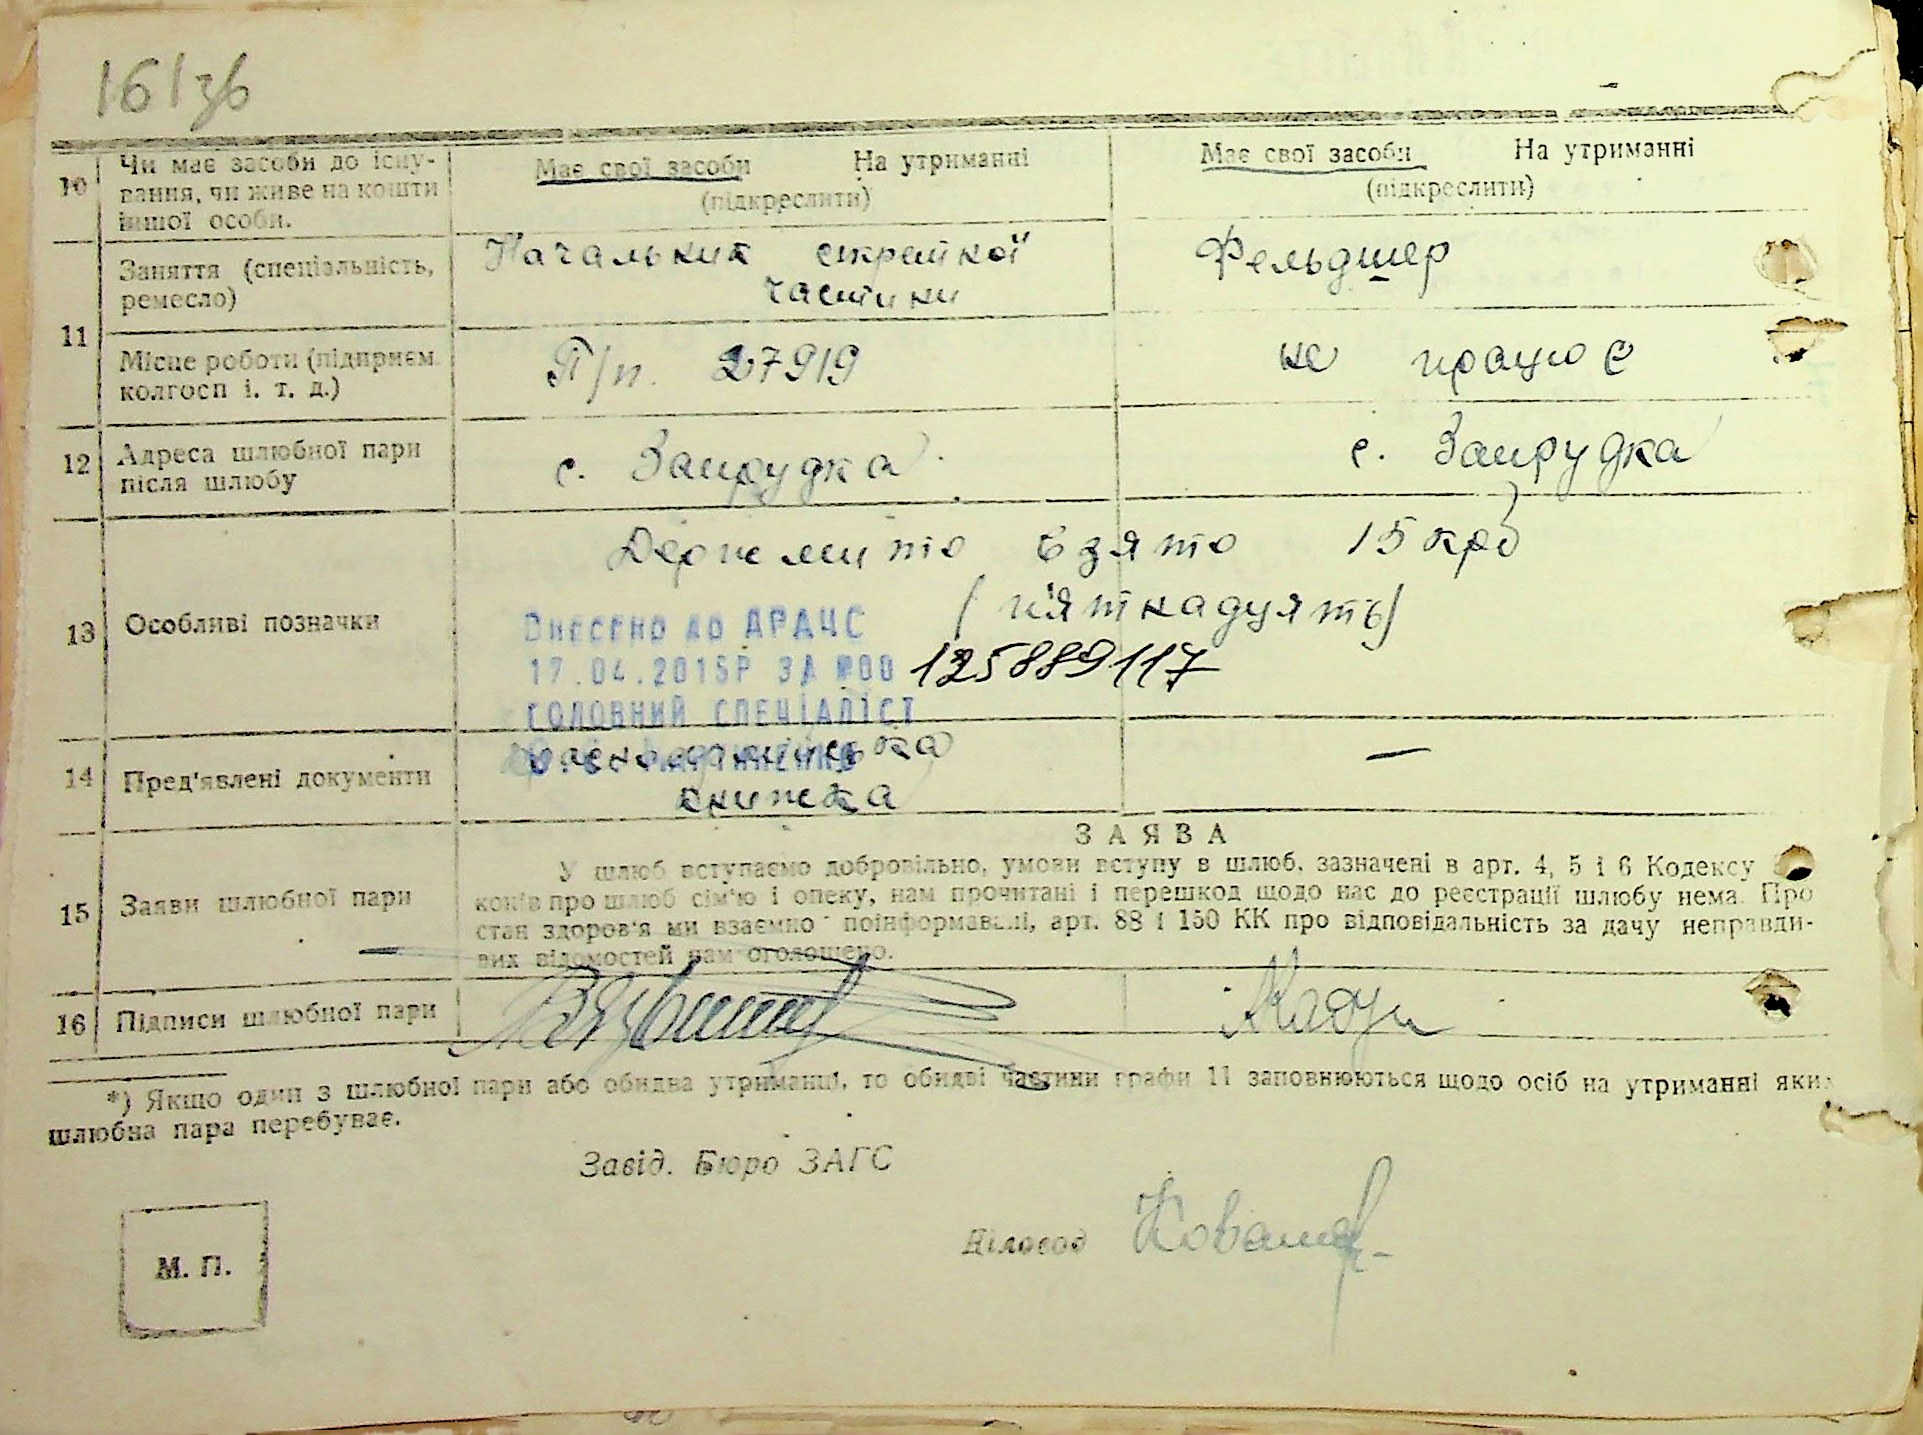 161зв
10 Чи має засоби до існу-
вання, чи живе на кошти
іншої особи.
Має свої засоби На утриманні
(підкреслити)
Має свої засоби На утриманні
(підкреслити)
11 Заняття (спеціальність,
ремесло)
Начальник
частини
Фельдшер
Місце роботи (підприєм.
колгосп і. т. д.)
П/п. 27919
не працює
12 Адреса шлюбної пари
після шлюбу
с. Запрудка
с. Запрудка
13 Особливі позначки
Держмито взято 15 крб
(п'ятнадцять)
ВНЕСЕНО ДО ДРАЦС
17.04.2015Р ЗА №00 125889117
ГОЛОВНИЙ СПЕЦІАЛІСТ
14 Пред'явлені документи
книжка
—
15 Заяви шлюбної пари
ЗАЯВА
У шлюб вступаємо добровільно, умови вступу в шлюб, зазначені в арт. 4, 5 і 6 Кодексу
конів про шлюб сім'ю і опеку, нам прочитані і перешкод щодо нас до реєстрації шлюбу нема. Про
стан здоров'я ми взаємно поінформовані, арт. 88 і 150 КК про відповідальність за дачу неправди-
вих відомостей нам оголошено.
16 Підписи шлюбної пари
*) Якщо один з шлюбної пари або обидва утриманці, то обидві частини графи 11 заповнюються щодо осіб на утриманні яких
шлюбна пара перебуває.
Завід. Бюро ЗАГС
Діловод
М. П.